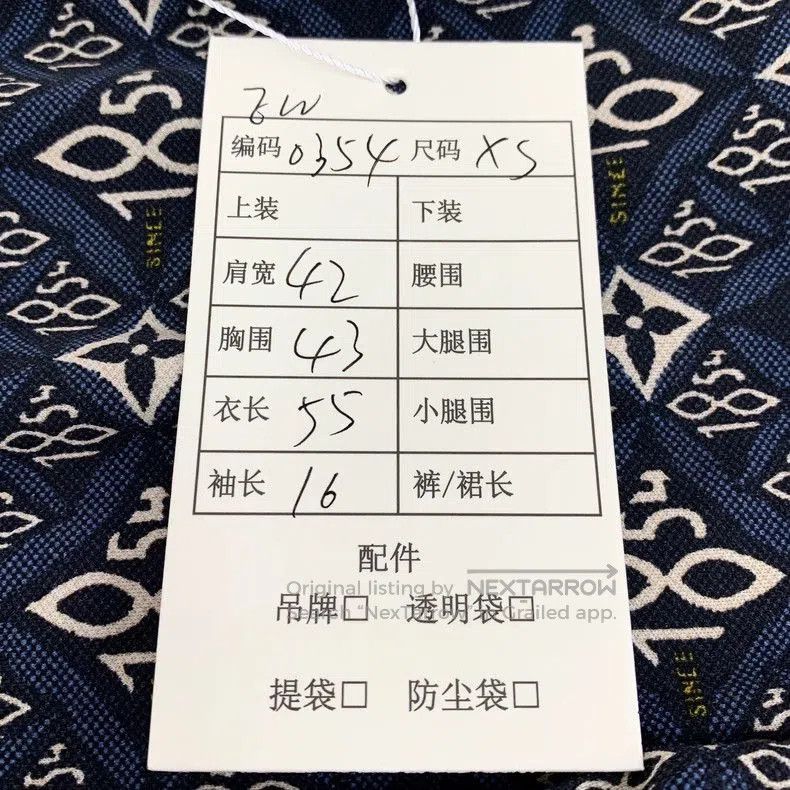 编码 0354 尺码 XS
上装 下装
肩宽 42 腰围
胸围 43 大腿围
衣长 55 小腿围
袖长 16 裤/裙长
配件
Original listing by NEXTARROW
吊牌□ 透明袋□
提袋□ 防尘袋□
SINCE
1854